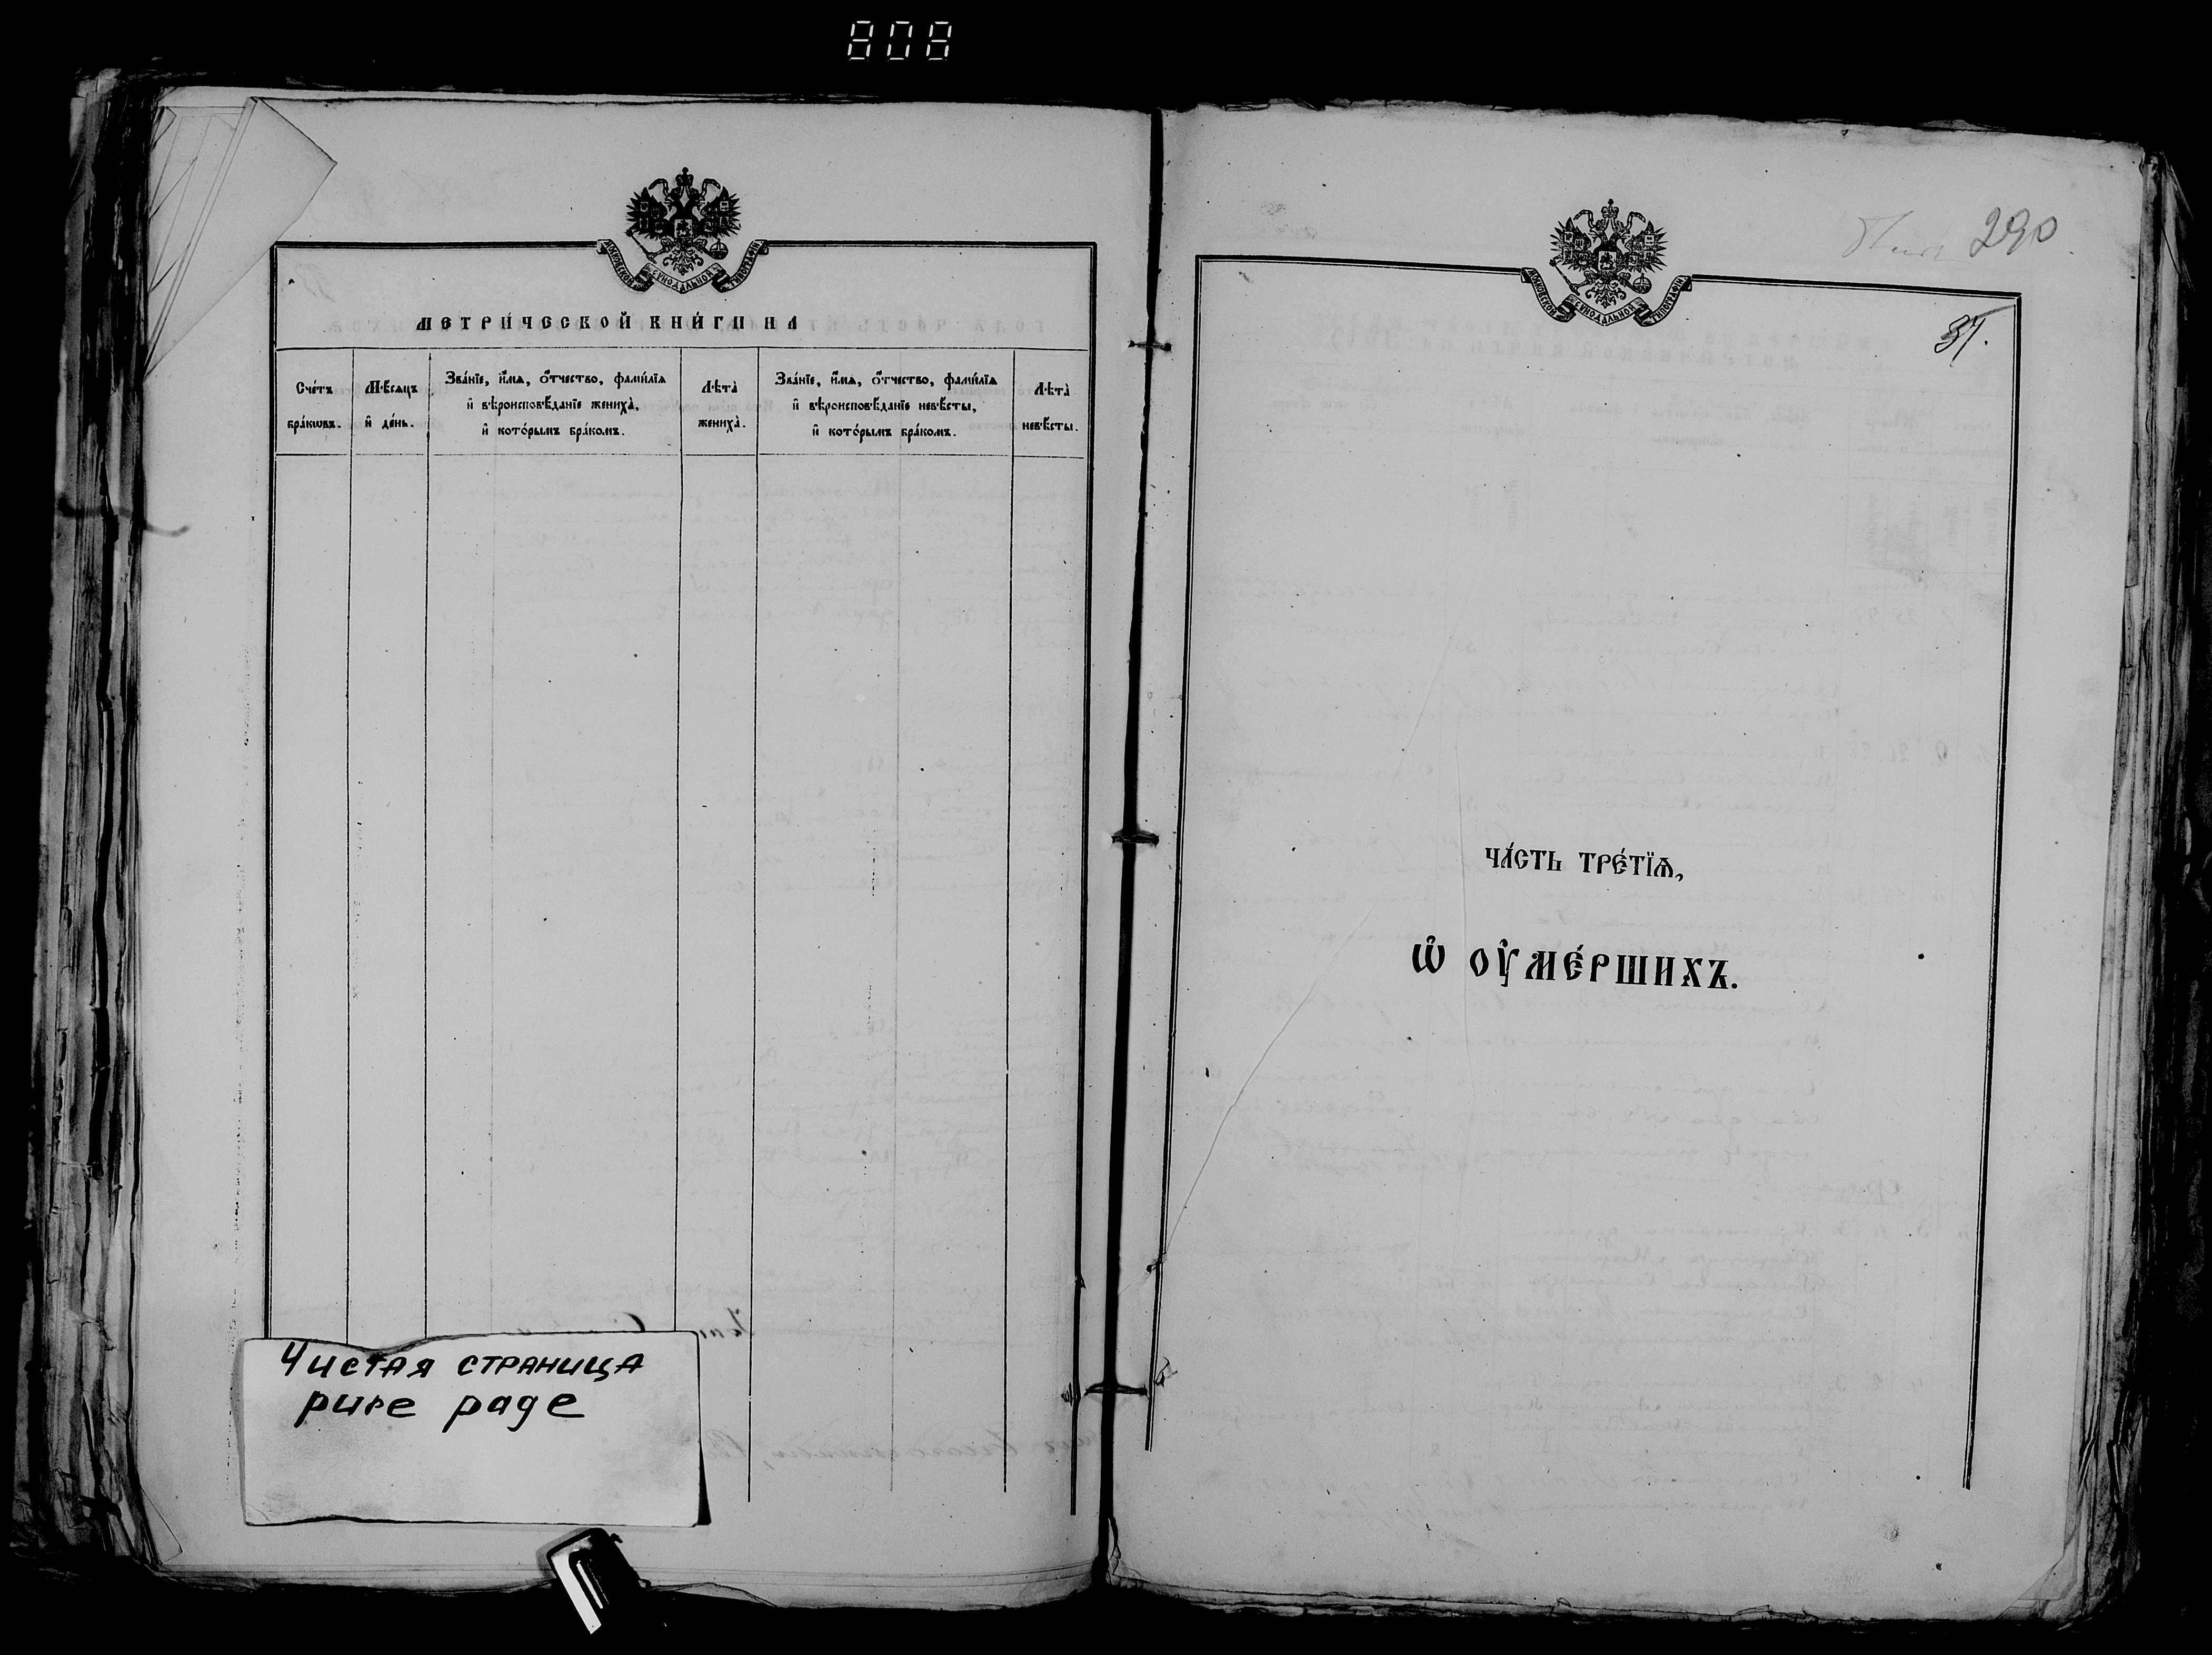 808
МОСКОВСКОЙ СѴНОДАЛЬНОЙ ТИПОГРАФІИ
МЕТРИ́ЧЕСКОЙ КНИ́ГИ НА
Сче́тъ бра́кѡвъ.
Мѣ́сяцъ и҆ де́нь.
Зва́нїе, и҆́мѧ, ѻ҆́тчество, фами́лїѧ
и҆ вѣроисповѣ́данїе жениха̀,
и҆ кото́рымъ бра́комъ.
Лѣта̀ жениха̀.
Зва́нїе, и҆́мѧ, ѻ҆́тчество, фами́лїѧ
и҆ вѣроисповѣ́данїе невѣ́сты,
и҆ кото́рымъ бра́комъ.
Лѣта̀ невѣ́сты.
Чистая страница
pure page
290
МОСКОВСКОЙ СѴНОДАЛЬНОЙ ТИПОГРАФІИ
37.
ЧА́СТЬ ТРЕ́ТЇѦ,
Ѡ҆ ОУ҆МЕ́РШИХЪ.